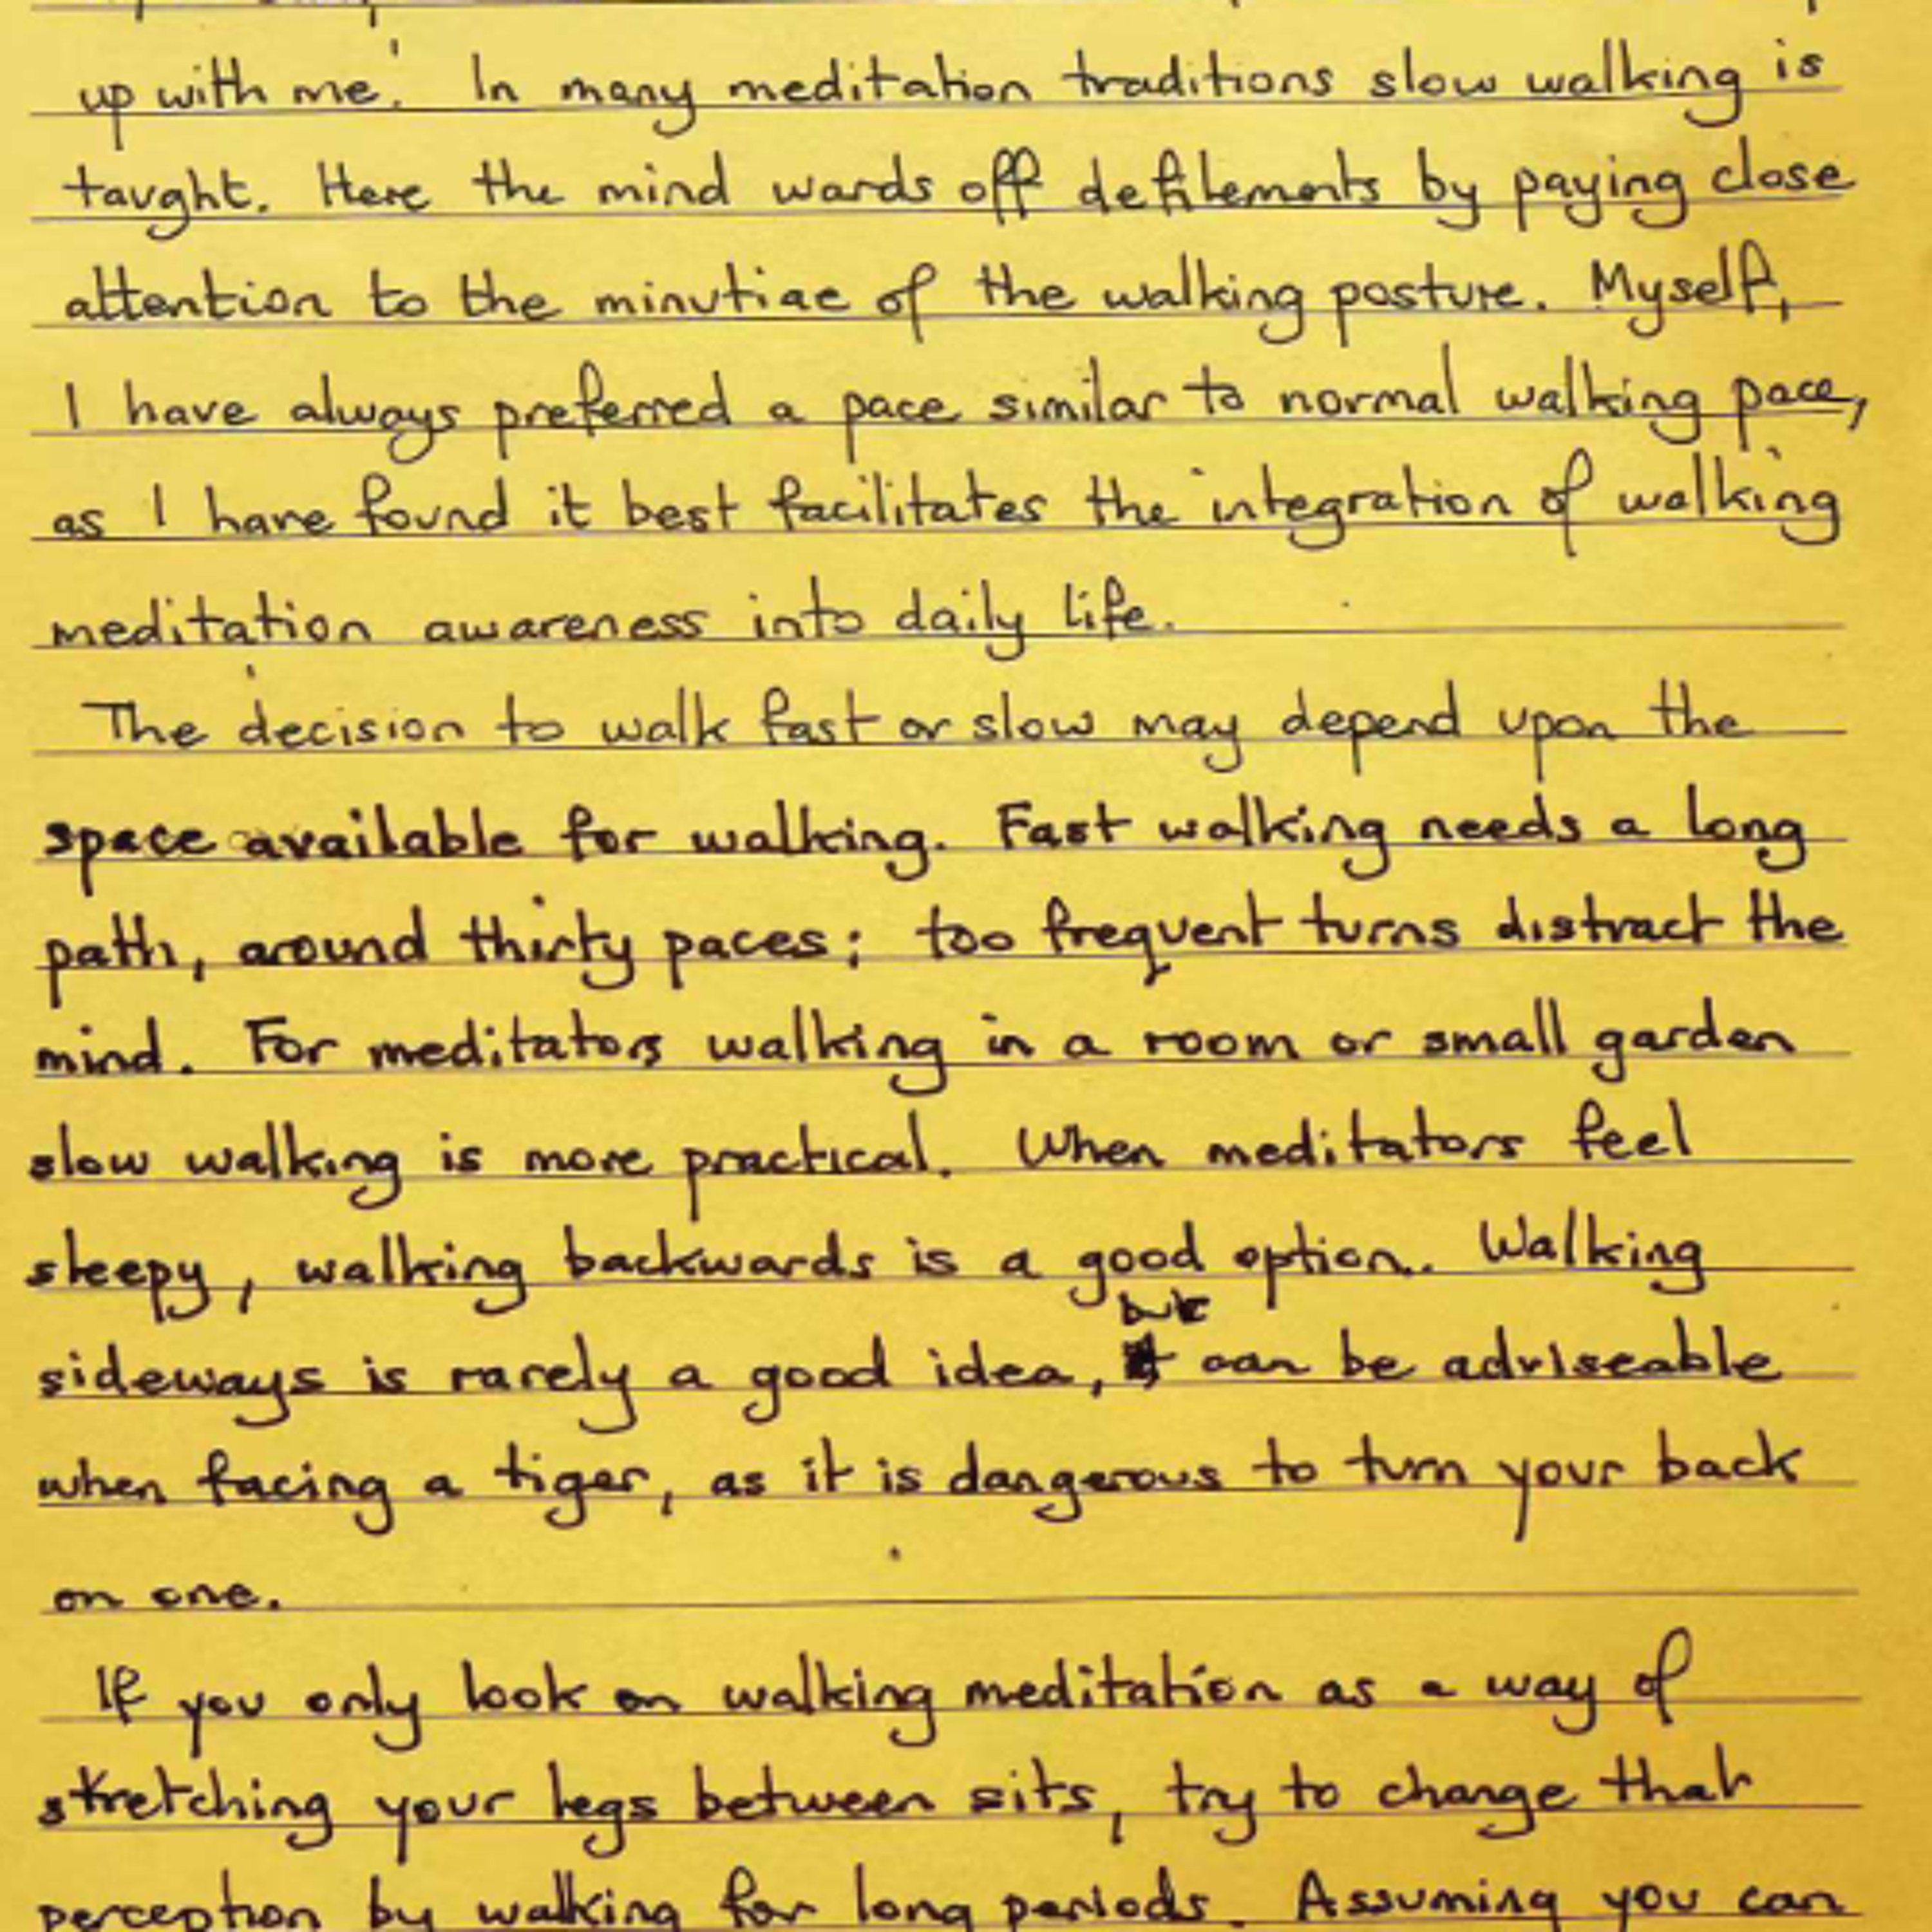 up with me.' In many meditation traditions slow walking is
taught. Here the mind wards off defilements by paying close
attention to the minutiae of the walking posture. Myself,
I have always preferred a pace similar to normal walking pace,
as I have found it best facilitates the integration of walking
meditation awareness into daily life.
The decision to walk fast or slow may depend upon the
space available for walking. Fast walking needs a long
path, around thirty paces; too frequent turns distract the
mind. For meditators walking in a room or small garden
slow walking is more practical. When meditators feel
sleepy, walking backwards is a good option. Walking
but
sideways is rarely a good idea, can be adviseable
when facing a tiger, as it is dangerous to turn your back
on one.
If you only look on walking meditation as a way of
stretching your legs between sits, try to change that
perception by walking for long periods. Assuming you can